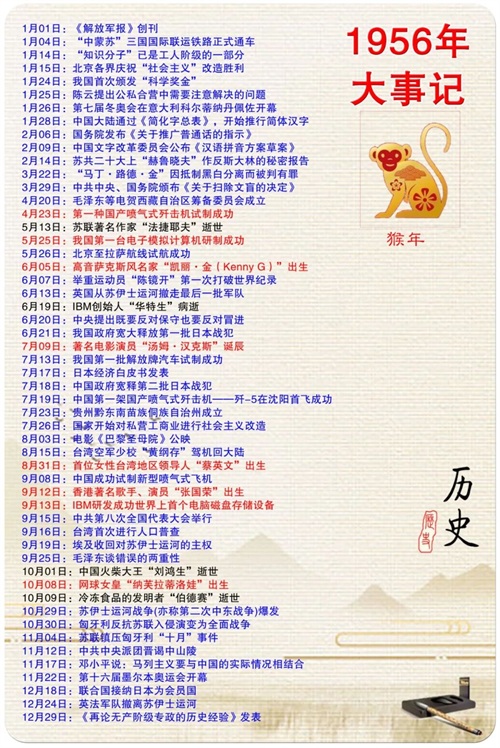 1956年
大事记
猴年
1月01日：《解放军报》创刊
1月04日：“中蒙苏”三国国际联运铁路正式通车
1月14日：“知识分子”已是工人阶级的一部分
1月15日：北京各界庆祝“社会主义”改造胜利
1月24日：我国首次颁发“科学奖金”
1月25日：陈云提出公私合营中需要注意解决的问题
1月26日：第七届冬奥会在意大利科尔蒂纳丹佩佐开幕
1月28日：中国大陆通过《简化字总表》，开始推行简体汉字
2月06日：国务院发布《关于推广普通话的指示》
2月09日：中国文字改革委员会公布《汉语拼音方案草案》
2月14日：苏共二十大上“赫鲁晓夫”作反斯大林的秘密报告
3月22日：“马丁·路德·金”因抵制黑白分离而被判有罪
3月29日：中共中央、国务院颁布《关于扫除文盲的决定》
4月20日：毛泽东等电贺西藏自治区筹备委员会成立
4月23日：第一种国产喷气式歼击机试制成功
5月13日：苏联著名作家“法捷耶夫”逝世
5月25日：我国第一台电子模拟计算机研制成功
5月26日：北京至拉萨航线试航成功
6月05日：高音萨克斯风名家“凯丽·金（Kenny G）”出生
6月07日：举重运动员“陈镜开”第一次打破世界纪录
6月13日：英国从苏伊士运河撤走最后一批军队
6月19日：IBM创始人“华特生”病逝
6月20日：中央提出既要反对保守也要反对冒进
6月21日：我国政府宽大释放第一批日本战犯
7月09日：著名电影演员“汤姆·汉克斯”诞辰
7月13日：我国第一批解放牌汽车试制成功
7月17日：日本经济白皮书发表
7月18日：中国政府宽释第二批日本战犯
7月19日：中国第一架国产喷气式歼击机——歼-5在沈阳首飞成功
7月23日：贵州黔东南苗族侗族自治州成立
7月26日：国家开始对私营工商业进行社会主义改造
8月03日：电影《巴黎圣母院》公映
8月15日：台湾空军少校“黄纲存”驾机回大陆
8月31日：首位女性台湾地区领导人“蔡英文”出生
9月08日：中国试制成功新型喷气式飞机
9月12日：香港著名歌手、演员“张国荣”出生
9月13日：IBM研发成功世界上首个电脑磁盘存储设备
9月15日：中共第八次全国代表大会举行
9月16日：台湾首次进行人口普查
9月19日：埃及收回对苏伊士运河的主权
9月25日：毛泽东谈错误的两重性
10月01日：中国火柴大王“刘鸿生”逝世
10月08日：网球女皇“纳芙拉蒂洛娃”出生
10月09日：冷冻食品的发明者“伯德赛”逝世
10月29日：苏伊士运河战争(亦称第二次中东战争)爆发
10月30日：匈牙利反抗苏联入侵演变为全面战争
11月04日：苏联镇压匈牙利“十月”事件
11月12日：中共中央派团晋谒中山陵
11月17日：邓小平说：马列主义要与中国的实际情况相结合
11月22日：第十六届墨尔本奥运会开幕
12月18日：联合国接纳日本为会员国
12月24日：英法军队撤离苏伊士运河
12月29日：《再论无产阶级专政的历史经验》发表
历史